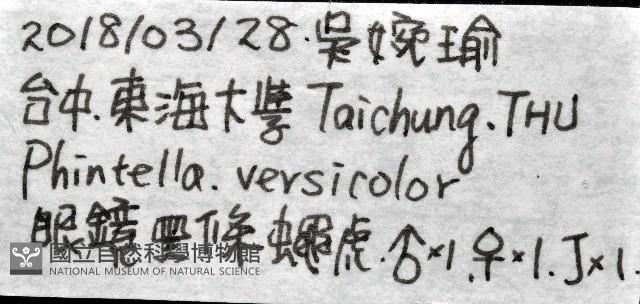 2018/03/28.吳婉瑜
台中.東海大學 Taichung.THU
Phintella. versicolor
眼鏡黑條蠅虎.♂×1.♀×1.J×1.
國立自然科學博物館
NATIONAL MUSEUM OF NATURAL SCIENCE